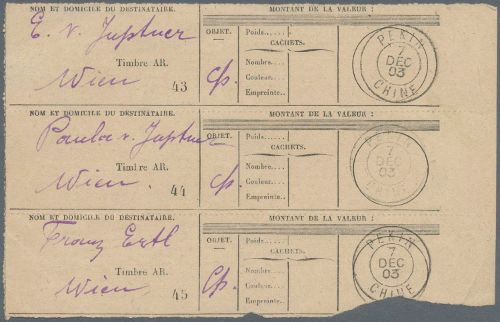 NOM ET DOMICILE DU DESTINATAIRE. MONTANT DE LA VALEUR :
E. v. Juptner OBJET. Poids......
CACHETS.
Timbre AR. Nombre....
Wien 43 Couleur....
Empreinte..
PEKIN
7
DÉC
03
CHINE
NOM ET DOMICILE DU DESTINATAIRE. MONTANT DE LA VALEUR :
Paula v. Juptner OBJET. Poids......
CACHETS.
Timbre AR. Nombre....
Wien. 44 Couleur....
Empreinte..
PEKIN
7
DÉC
03
CHINE
NOM ET DOMICILE DU DESTINATAIRE. MONTANT DE LA VALEUR :
Franz Ertl OBJET. Poids......
CACHETS.
Timbre AR. Nombre....
Wien 45 Couleur....
Empreinte..
PEKIN
7
DÉC
03
CHINE